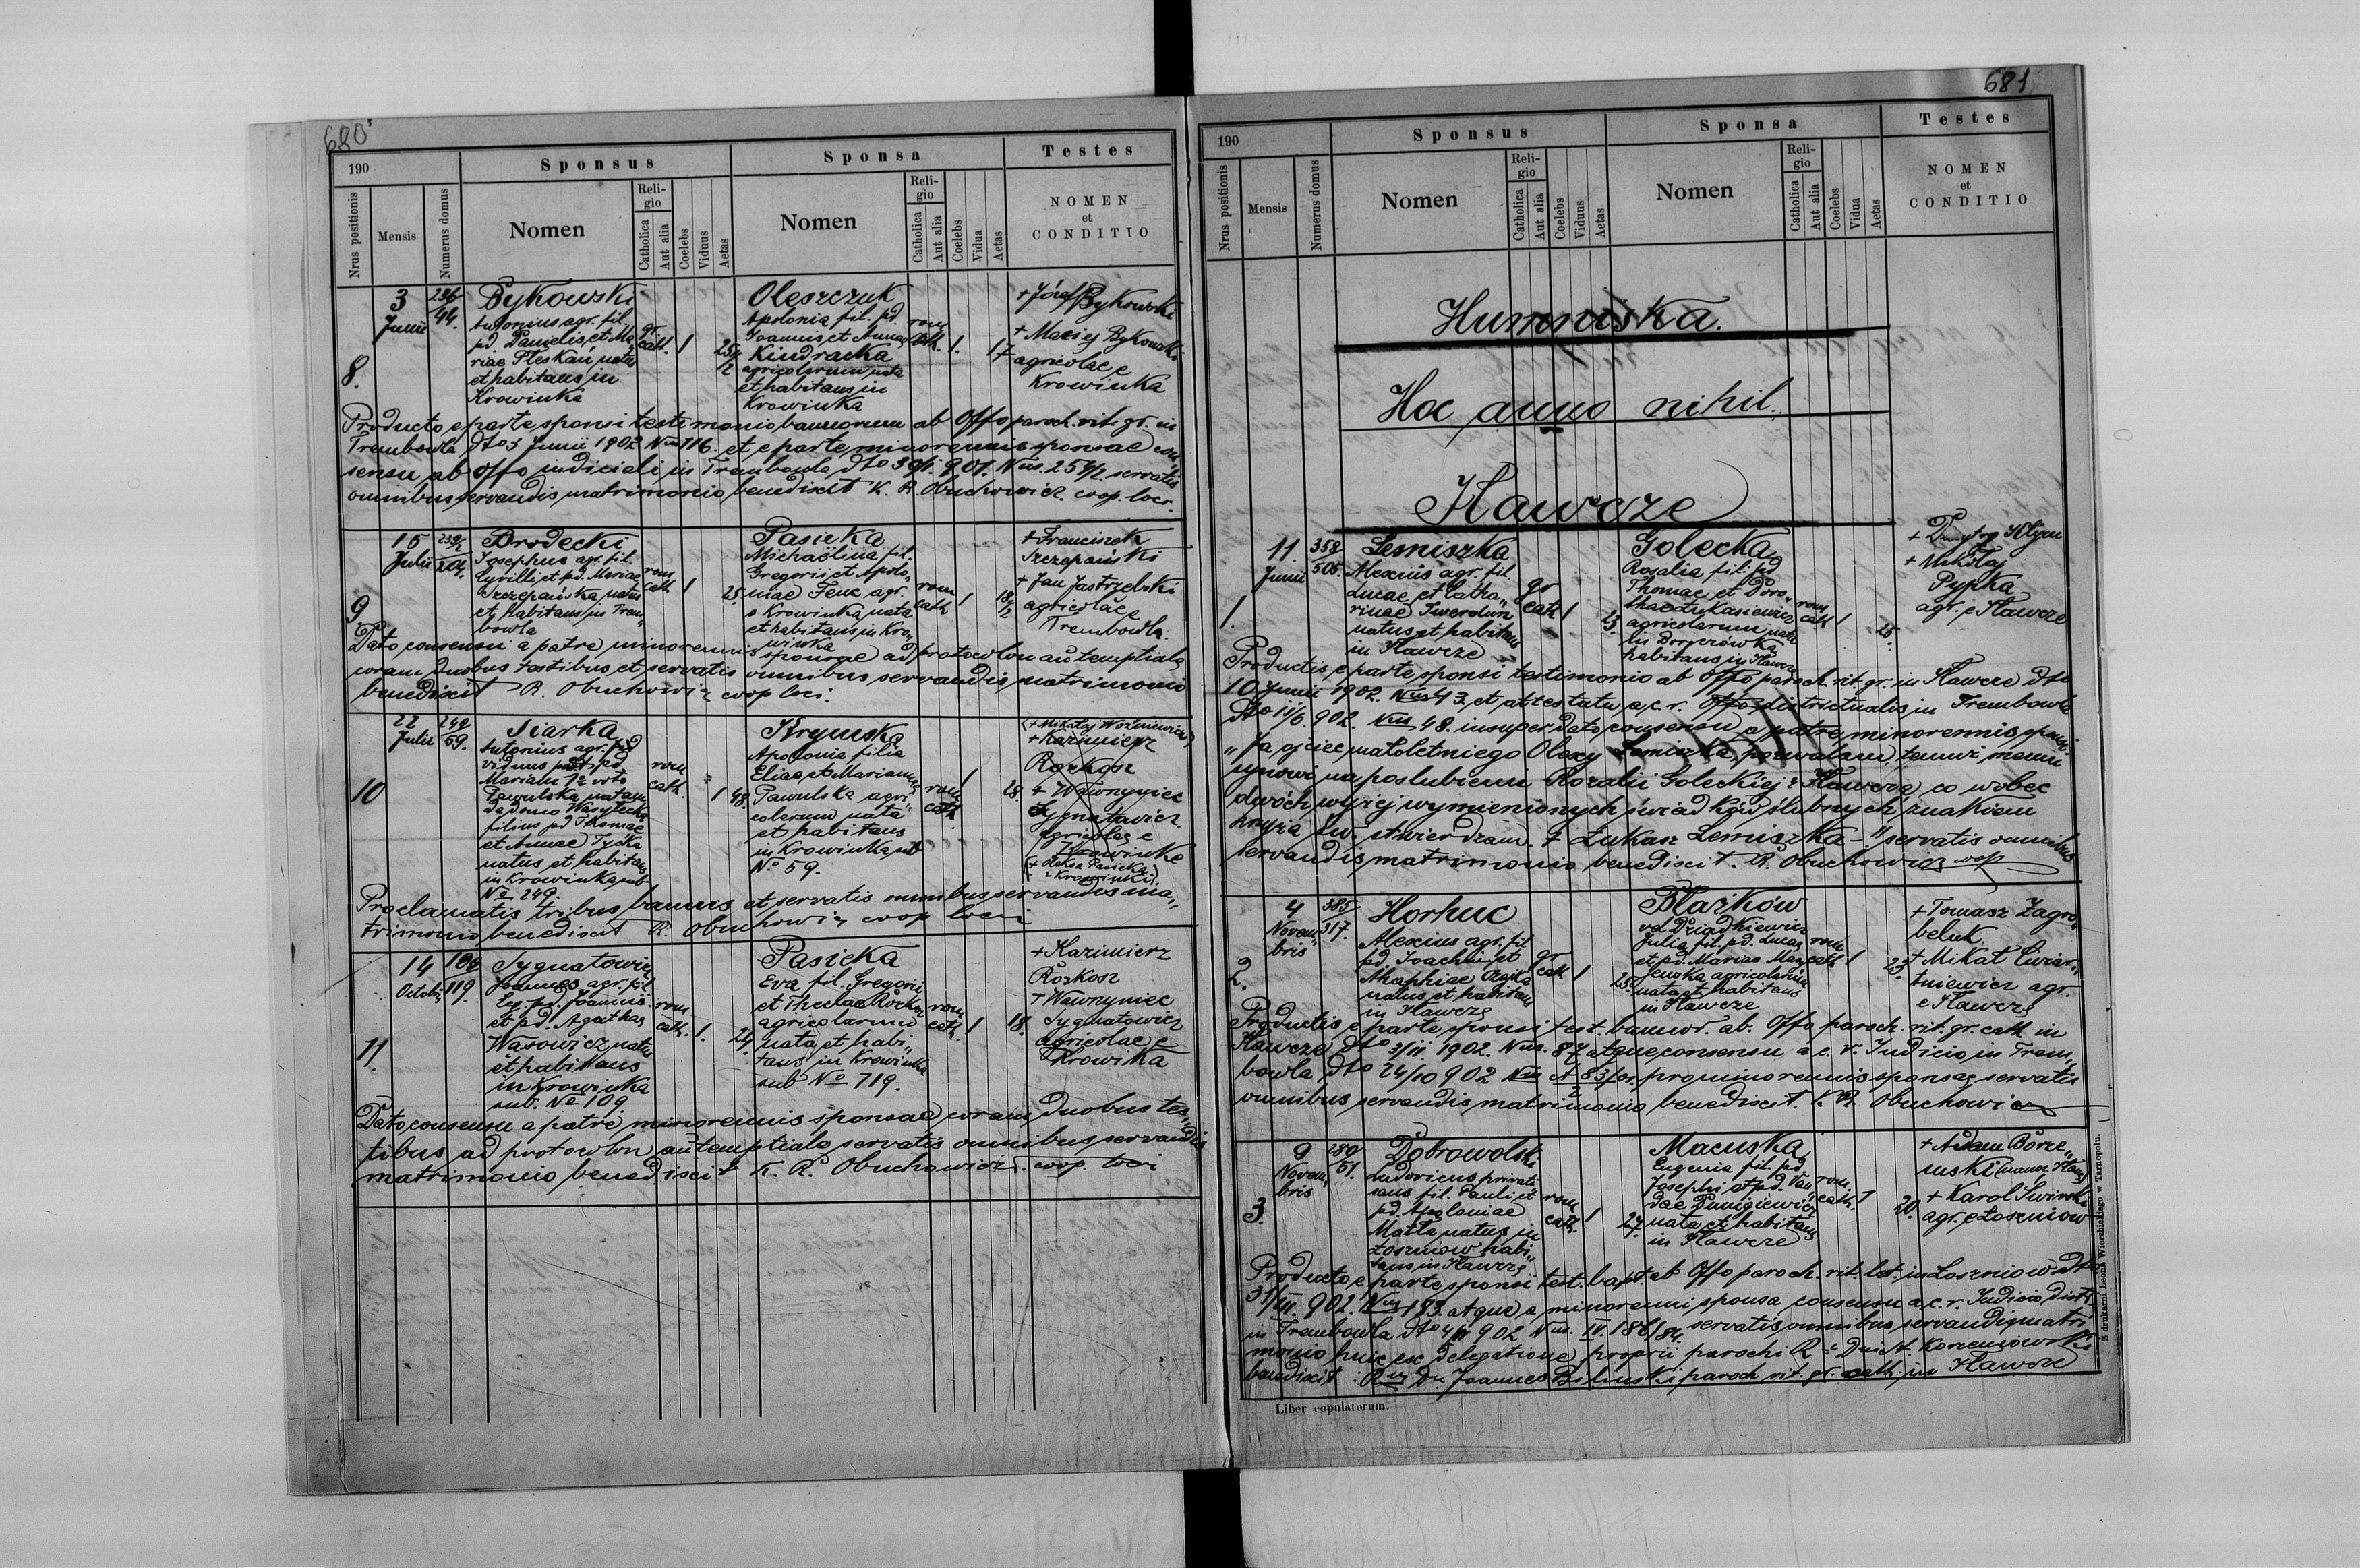 680
190
Sponsus
Sponsa
Testes
Nrus positionis
Mensis
Numerus domus
Nomen
Religio
Catholica
Aut alia
Coelebs
Viduus
Aetas
Nomen
Religio
Catholica
Aut alia
Coelebs
Vidua
Aetas
NOMEN
et
CONDITIO
8.
3
Junii
236/
44.
Bykowski
Antonius agr. fil.
pd. Danielis, et Ma„
riae Pleskań, natus
et habitans in
Krowinka
gr.
cath.
1
25 1/2
Oleszczuk
Apolonia fil. pd.
Joannis et Annae
Kindracka
agricolarum nata
et habitans in
Krowinka
rom
cath.
1.
17
+ Józef Bykowski
+ Maciej Bykowski
agricolae e
Krowinka
Producto e parte sponsi testimonio bannorum ab Offo paroch. rit. gr. in
Trembowla dto 3 Junii 1902 Nus 116. et e parte minorennis sponsae con„
sensu ab Offo judiciali in Trembowla dto 901. Nus. servatis
omnibus servandis matrimonio benedixit K. R. Obuchowicz coop. loci.
9
15
Julii
Brodecki
Josephus agr. fil.
Cyrilli et pd. Mariae
Szczepańska natus
et habitans in Trem„
bowla
rom
cath.
1
25.
Pasieka
Michaëlina fil.
Gregorii et Apolo„
niae Fenc agr.
e Krowinka nata
et habitans in Kro„
winka
rom
cath
1
18 1/2
+ Franciszek
Szczepański
+ Jan Jastrzębski
agricolae e
Trembowla.
Dato consensu a patre minorennis sponsae ad protocolon
coram duobus testibus et servatis omnibus servandis matrimonio
benedixit R. Obuchowicz coop loci.
10
22
Julii
249/
59.
Siarka
Antonius agr.
viduus post pd
Mariam voto
Pawulska natam
de domo Wasylecka
filius pd Thomae
et Annae Tycka
natus et habitans
in Krowinka sub
No 249.
rom
cath.
1
48.
Krymska
Apolonia filia
Eliae et Marianna
Pawulska agri„
colarum nata
et habitans
in Krowinka sub
No 59.
rom
cath
1
28.
(+ Mikołaj Woźniewicz)
+ Kazimierz
Rożkosz
+ Wawrzyniec
Sygnatowicz
agricolae e
Krowinka
Proclamatis tribus bannis et servatis omnibus servandis ma„
trimonio benedixit R. Obuchowicz coop loci
11.
14
Octobris
109/
119.
Sygnatowicz
Joannes agr. fil.
leg. pd. Joannis
et pd. Agathae
Wąsowicz natus
et habitans
in Krowinka
sub. No 109.
rom
cath.
1.
24
Pasieka
Eva fil. Gregorii
et Theclae Rożkosz
agricolarum
nata et habi„
tans in Krowinka
sub No 119.
rom
cath.
1
18.
+ Kazimierz
Rożkosz
+ Wawrzyniec
Sygnatowicz
agricolae e
Krowinka
Dato consensu a patre minorennis sponsae, coram duobus tes„
tibus ad protocolon servatis omnibus servandis
matrimonio benedixit K. R. Obuchowicz. coop. loci
681
190
Sponsus
Sponsa
Testes
Nrus positionis
Mensis
Numerus domus
Nomen
Religio
Catholica
Aut alia
Coelebs
Viduus
Aetas
Nomen
Religio
Catholica
Aut alia
Coelebs
Vidua
Aetas
NOMEN
et
CONDITIO
Humniska.
Hoc anno nihil.
Hławcze
1.
11
Junii
358/
506.
Lemiszka
Alexius agr. fil.
Lucae et Catha„
rinae Twerdun
natus et habitans
in Hławcze
gr
cath
1
23.
Golecka
Rosalia fil. pd
Thomae et Doro„
theae Łukasiewicz
agricolarum nata
in Boryczówka
habitans in Hławcze
rom
cath
1
25.
+ Dmytro Klym
+ Mikołaj
Pypka
agr. e Hławcze
Productis e parte sponsi testimonio ab Offo paroch. rit. gr. in Hławcze dto
10 Junii 1902. Nus 43. et attestatu a c. r. Offo districtualis in Trembowla
dto 11/6 902. Nus 48. insuper dato consensu a patre minorennis sponsi
„Ja ojciec małoletniego Olexy Lemiszka, pozwalam temuż memu
synowi na poslubieniu Rozalii Goleckiej z Hławcza, co wobec
dwóch wyżej wymienionych świadków ślubnych znakiem
krzyża św. stwierdzam. + Łukasz Lemiszka –" servatis omnibus
servandis matrimonio benedixit. R. Obuchowicz coop
2.
4
Novem„
bris
385/
317.
Horhuc
Alexius agr. fil
pd. Joachimi et
Ahaphiae
natus et habitans
in Hławcze
gr
cath
1
25.
Błażków
vel Dziadkiewicz
Julia fil. pd. Lucae
et pd. Mariae
agricolarum
nata et habitans
in Hławcze
rom
cath
1
23.
+ Tomasz Zagro„
beluk.
+ Mikał Cwiar„
tniewicz agr.
e Hławcze
Productis e parte sponsi test. bannor. ab. Offo paroch. rit. gr. cath in
Hławcze, dto 3/11 1902. Nus. 87 atque consensu a c. r. Judicio in Trem„
bowla, dto 24/10 902 Nus pro minorennis sponsae servatis
omnibus servandis matrimonio benedixit. K R. Obuchowicz
3.
9
Novem„
bris
289/
51.
Dobrowolski
Ludovicus privati„
sans fil. Pauli et
pd. Apoloniae
Matła natus in
Łoszniow habi„
tans in Hławcze
rom
cath.
1
27.
Macuska
Eugenia fil. pd.
Josephi et pd. Van„
dae
nata et habitans
in Hławcze
rom.
cath.
1
20.
+ Adam Borze„
mski
+ Karol Swirski
agr. e Łoszniow
Producto e parte sponsi test. bapt. ab Offo paroch. rit. lat. in Łoszniow dto
902. Nus 183. atque a minorenni sponsa consensu a c. r. Judicio distr.
in Trembowla dto 902 Nus. servatis omnibus servandis matri„
monio huic ex delegatione proprii parochi Rdi Dni A. Korzeniowski
benedixit: Rus Dn. Joannes Biliński paroch rit. gr. cath. in Hławcze
Liber copulatorum.
Z drukarni Leona Wierzbickiego w Tarnopolu.